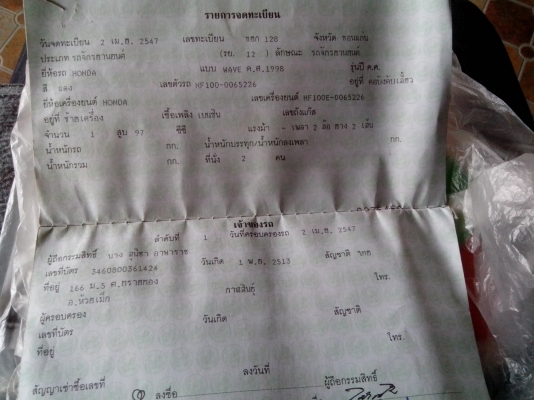 รายการจดทะเบียน
วันจดทะเบียน 2 เม.ย. 2547 เลขทะเบียน 128 จังหวัด ขอนแก่น
ประเภท รถจักรยานยนต์ (รย. 12 ) ลักษณะ รถจักรยานยนต์
ยี่ห้อรถ HONDA แบบ WAVE ค.ศ.1998 รุ่นปี ค.ศ.
สี แดง เลขตัวรถ HF100-0065226 อยู่ที่ คอบังคับเลี้ยว
ยี่ห้อเครื่องยนต์ HONDA เลขเครื่องยนต์ HF100E-0065226
อยู่ที่ ข้างเครื่อง เชื้อเพลิง เบนซิน เลขถังแก๊ส
จำนวน 1 สูบ 97 ซีซี แรงม้า - เพลา 2 ล้อ ยาง 2 เส้น
น้ำหนักรถ กก. น้ำหนักบรรทุก/น้ำหนักลงเพลา กก.
น้ำหนักรวม กก. ที่นั่ง 2 คน
เจ้าของรถ
ลำดับที่ 1 วันที่ครอบครองรถ 2 เม.ย. 2547
ผู้ถือกรรมสิทธิ์ นาง
เลขที่บัตร 3460800361424 วันเกิด 1 พ.ย. 2513 สัญชาติ ไทย
ที่อยู่ 166 ม.5 ต.ทรายทอง กาฬสินธุ์ โทร.
อ.ห้วยเม็ก
ผู้ครอบครอง
เลขที่บัตร วันเกิด สัญชาติ
ที่อยู่ โทร.
ลงวันที่
สัญญาเช่าซื้อเลขที่ ลงชื่อ ผู้ถือกรรมสิทธิ์